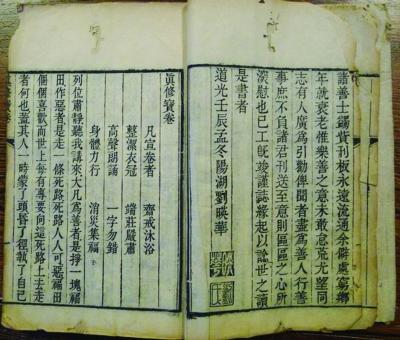 諸善士錫貲刊板永遠流通余僻處窮鄉
年就衰老惟樂善之意未敢怠荒尤望同
志有人廣為引勸俾聞者盡為善人行善
事庶不負諸君刊送至意則區區之心所
深慰也已工旣竣謹誌緣起以諗世之讀
是書者
道光壬辰孟冬陽湖劉暎華
眞修寶卷
凡宣卷者 齋戒沐浴
整潔衣冠 端莊嚴肅
高聲朗誦 一字勿錯
身體力行 消災集福
列位肅靜聽我講來大凡為善者是掙一塊福
田作惡者是走一條死路人人可惡福田
個個喜歡而世上每有專要向這死路上去走
者何也蓋其人一時蒙了頭昏了程執了自己